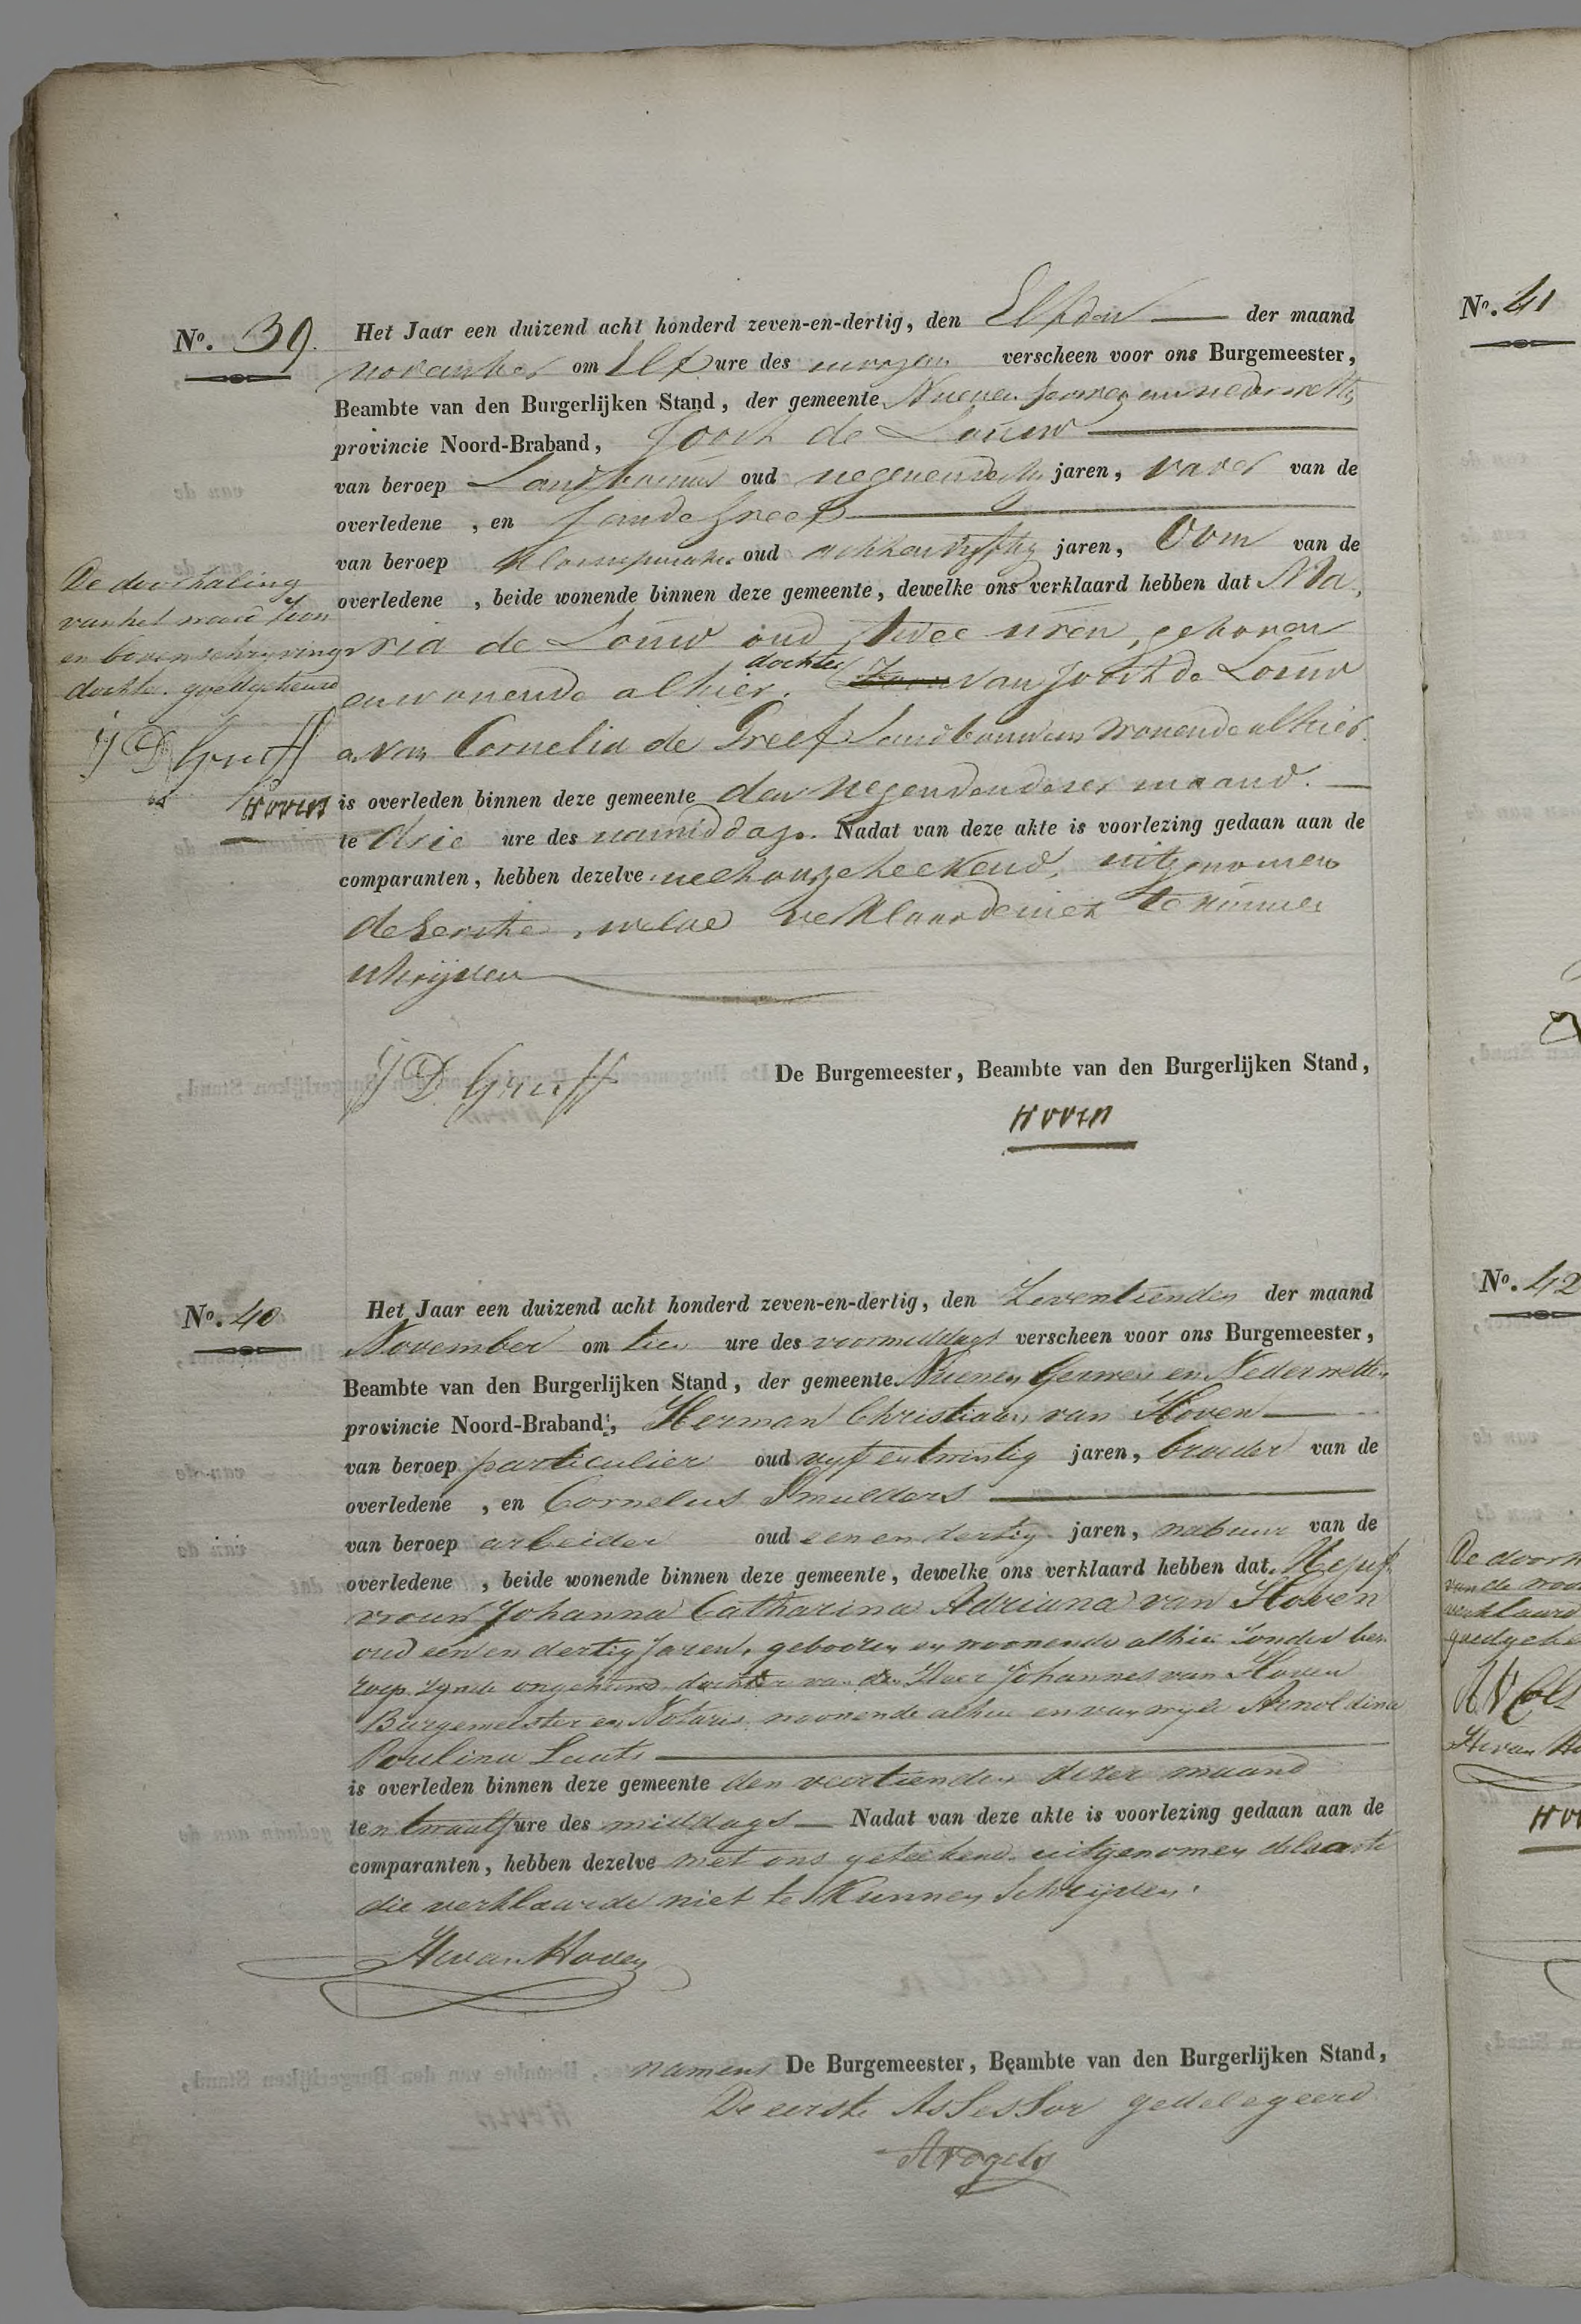 No. 39.
Het Jaar een duizend acht honderd zeven-en-dertig, den Elfden der maand
November om Elf ure des morgens verscheen voor ons Burgemeester,
Beambte van den Burgerlijken Stand, der gemeente Nuenen Gerwen en Nederwetten
provincie Noord-Braband, Joost de Louw
van beroep Landbouwer oud negenendertig jaren, vader van de
overledene , en Jan de Greef
van beroep oud achtenvyftig jaren, Oom van de
overledene , beide wonende binnen deze gemeente, dewelke ons verklaard hebben dat Ma,
ria de Louw oud twee uren, geboren
en wonende alhier. dochter Zoon van Joost de Louw
en van Cornelia de Greef Landbouwers wonende alhier
is overleden binnen deze gemeente den negenden dezer maand.
te drie ure des namiddags. Nadat van deze akte is voorlezing gedaan aan de
comparanten, hebben dezelve met ons geteekend, uitgenomen
de Eerste, welke verklaarde niet te kunnen
schrijven
De doorhaling
van het woord Zoon
en bovenschryving
dochter goedgekeurd
J D Greeff
Hoven
J D Greeff
De Burgemeester, Beambte van den Burgerlijken Stand,
Hoven
No. 40
Het Jaar een duizend acht honderd zeven-en-dertig, den Zeventienden der maand
November om tien ure des voormiddags verscheen voor ons Burgemeester,
Beambte van den Burgerlijken Stand, der gemeente Nuenen Gerwen en Nederwetten
provincie Noord-Braband, Herman Christiaan van Hoven
van beroep particulier oud vyf en twintig jaren, broeder van de
overledene , en Cornelus Smulders
van beroep arbeider oud een en dertig jaren, nabuur van de
overledene , beide wonende binnen deze gemeente, dewelke ons verklaard hebben dat Mejuf
vrouw Johanna Catharina Adriana van Hoven
oud een en dertig Jaren, gebooren en woonende alhier zonder be
roep zynde ongehuwd dochter van den Heer Johannes van Hoven
Burgemeester en Notaris woonende alhier en van wyle Arnoldina
Paulina Laats
is overleden binnen deze gemeente den veertienden dezer maand
ten twaalf ure des middags Nadat van deze akte is voorlezing gedaan aan de
comparanten, hebben dezelve met ons geteekend uitgenomen de laaste
die verklaarde niet te Kunnen Schrijven.
H C van Hoven
namens De Burgemeester, Beambte van den Burgerlijken Stand,
De eerste Assessor gedelegeerd
A Vogels
No. 41
No. 42
De doorh
van de woor
verklaard
goedgeke